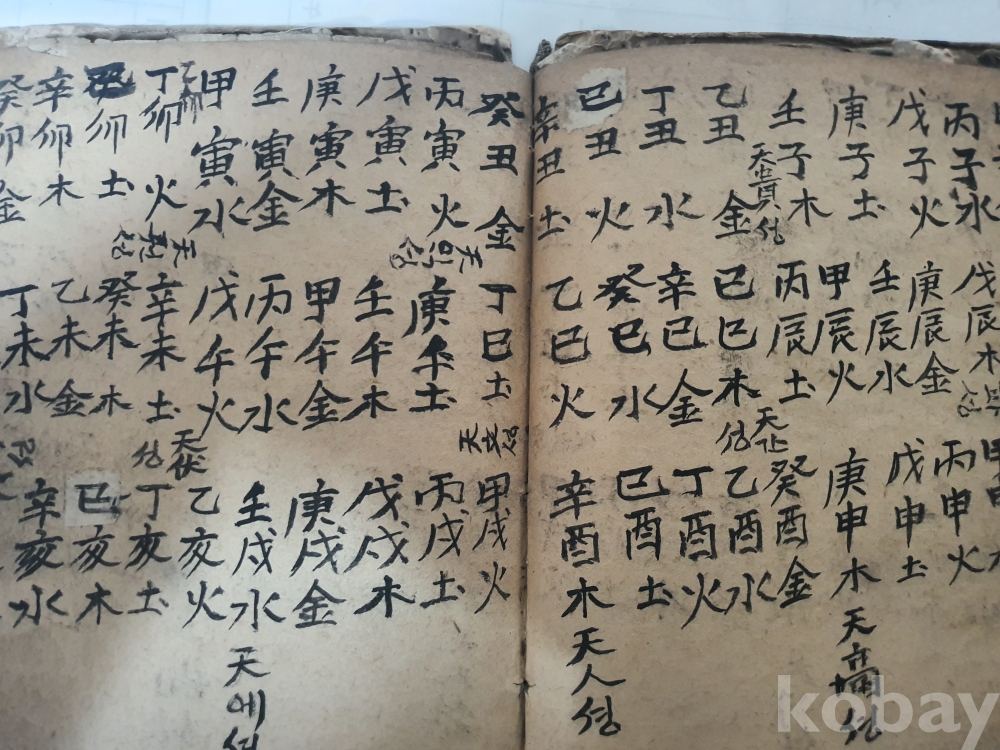 丙子水
戊子火
庚子土
壬子木
天貴성
乙丑金
丁丑水
己丑火
辛丑土
戊辰木
庚辰金
壬辰水
甲辰火
丙辰土
己巳木
辛巳金
癸巳水
乙巳火
丙申火
戊申土
庚申木
癸酉金
乙酉水
丁酉火
己酉土
辛酉木
天人성
癸丑金
丙寅火
天액성
戊寅土
庚寅木
壬寅金
甲寅水
乙卯
丁卯火
己卯土
辛卯木
癸卯金
丁巳土
庚午土
壬午木
甲午金
丙午水
戊午火
辛未土
癸未木
乙未金
丁未水
甲戌火
丙戌土
戊戌木
庚戌金
壬戌水
天예성
乙亥火
丁亥土
己亥木
辛亥水
kobay